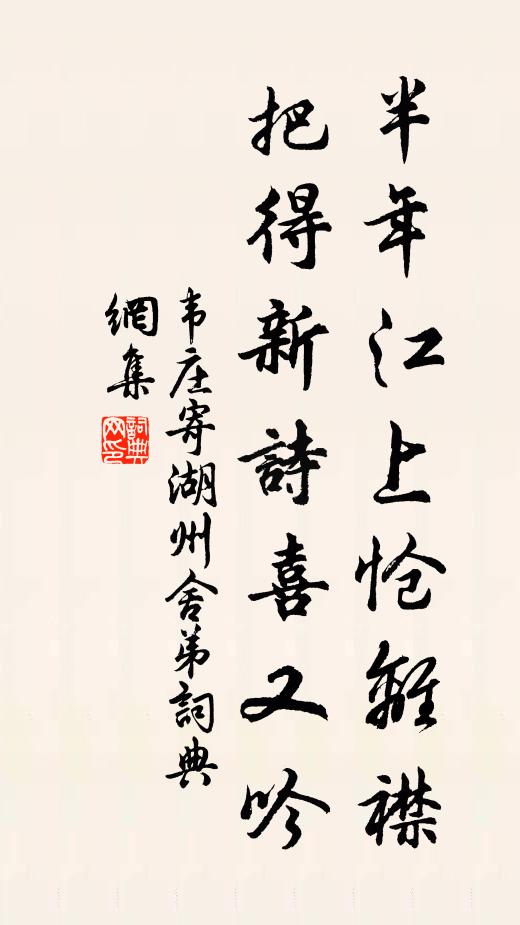 半年江上怆離襟
把得新詩喜又吟
韦庄寄湖州舍弟詞典
網集
詞典网印